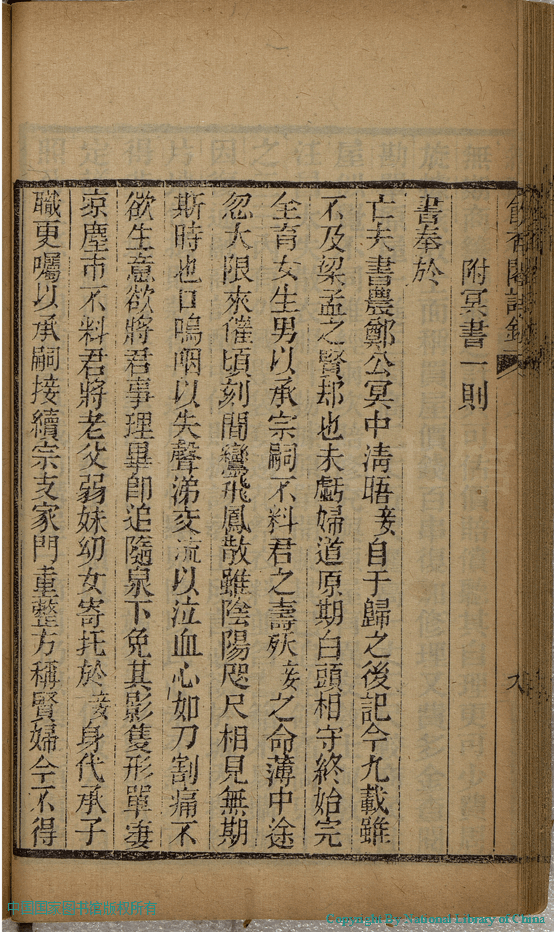 香閣詩鈔
附冥書一則
書奉於
亡夫書農鄭公冥中清晤妾自于歸之後記今九載雖
不及梁孟之賢却也未虧婦道原期白頭相守終始完
全育女生男以承宗嗣不料君之壽殀妾之命薄中途
忽大限來催頃刻間鸞飛鳳散雖陰陽咫尺相見無期
斯時也口嗚咽以失聲涕交流以泣血心如刀割痛不
欲生意欲將君事理畢卽追隨泉下免其影隻形單凄
凉塵市不料君將老父弱妹幼女寄托於妾身代承子
職更囑以承嗣接續宗支家門重整方稱賢婦今不得
中国国家图书馆版权所有
Copyright By National Library of China